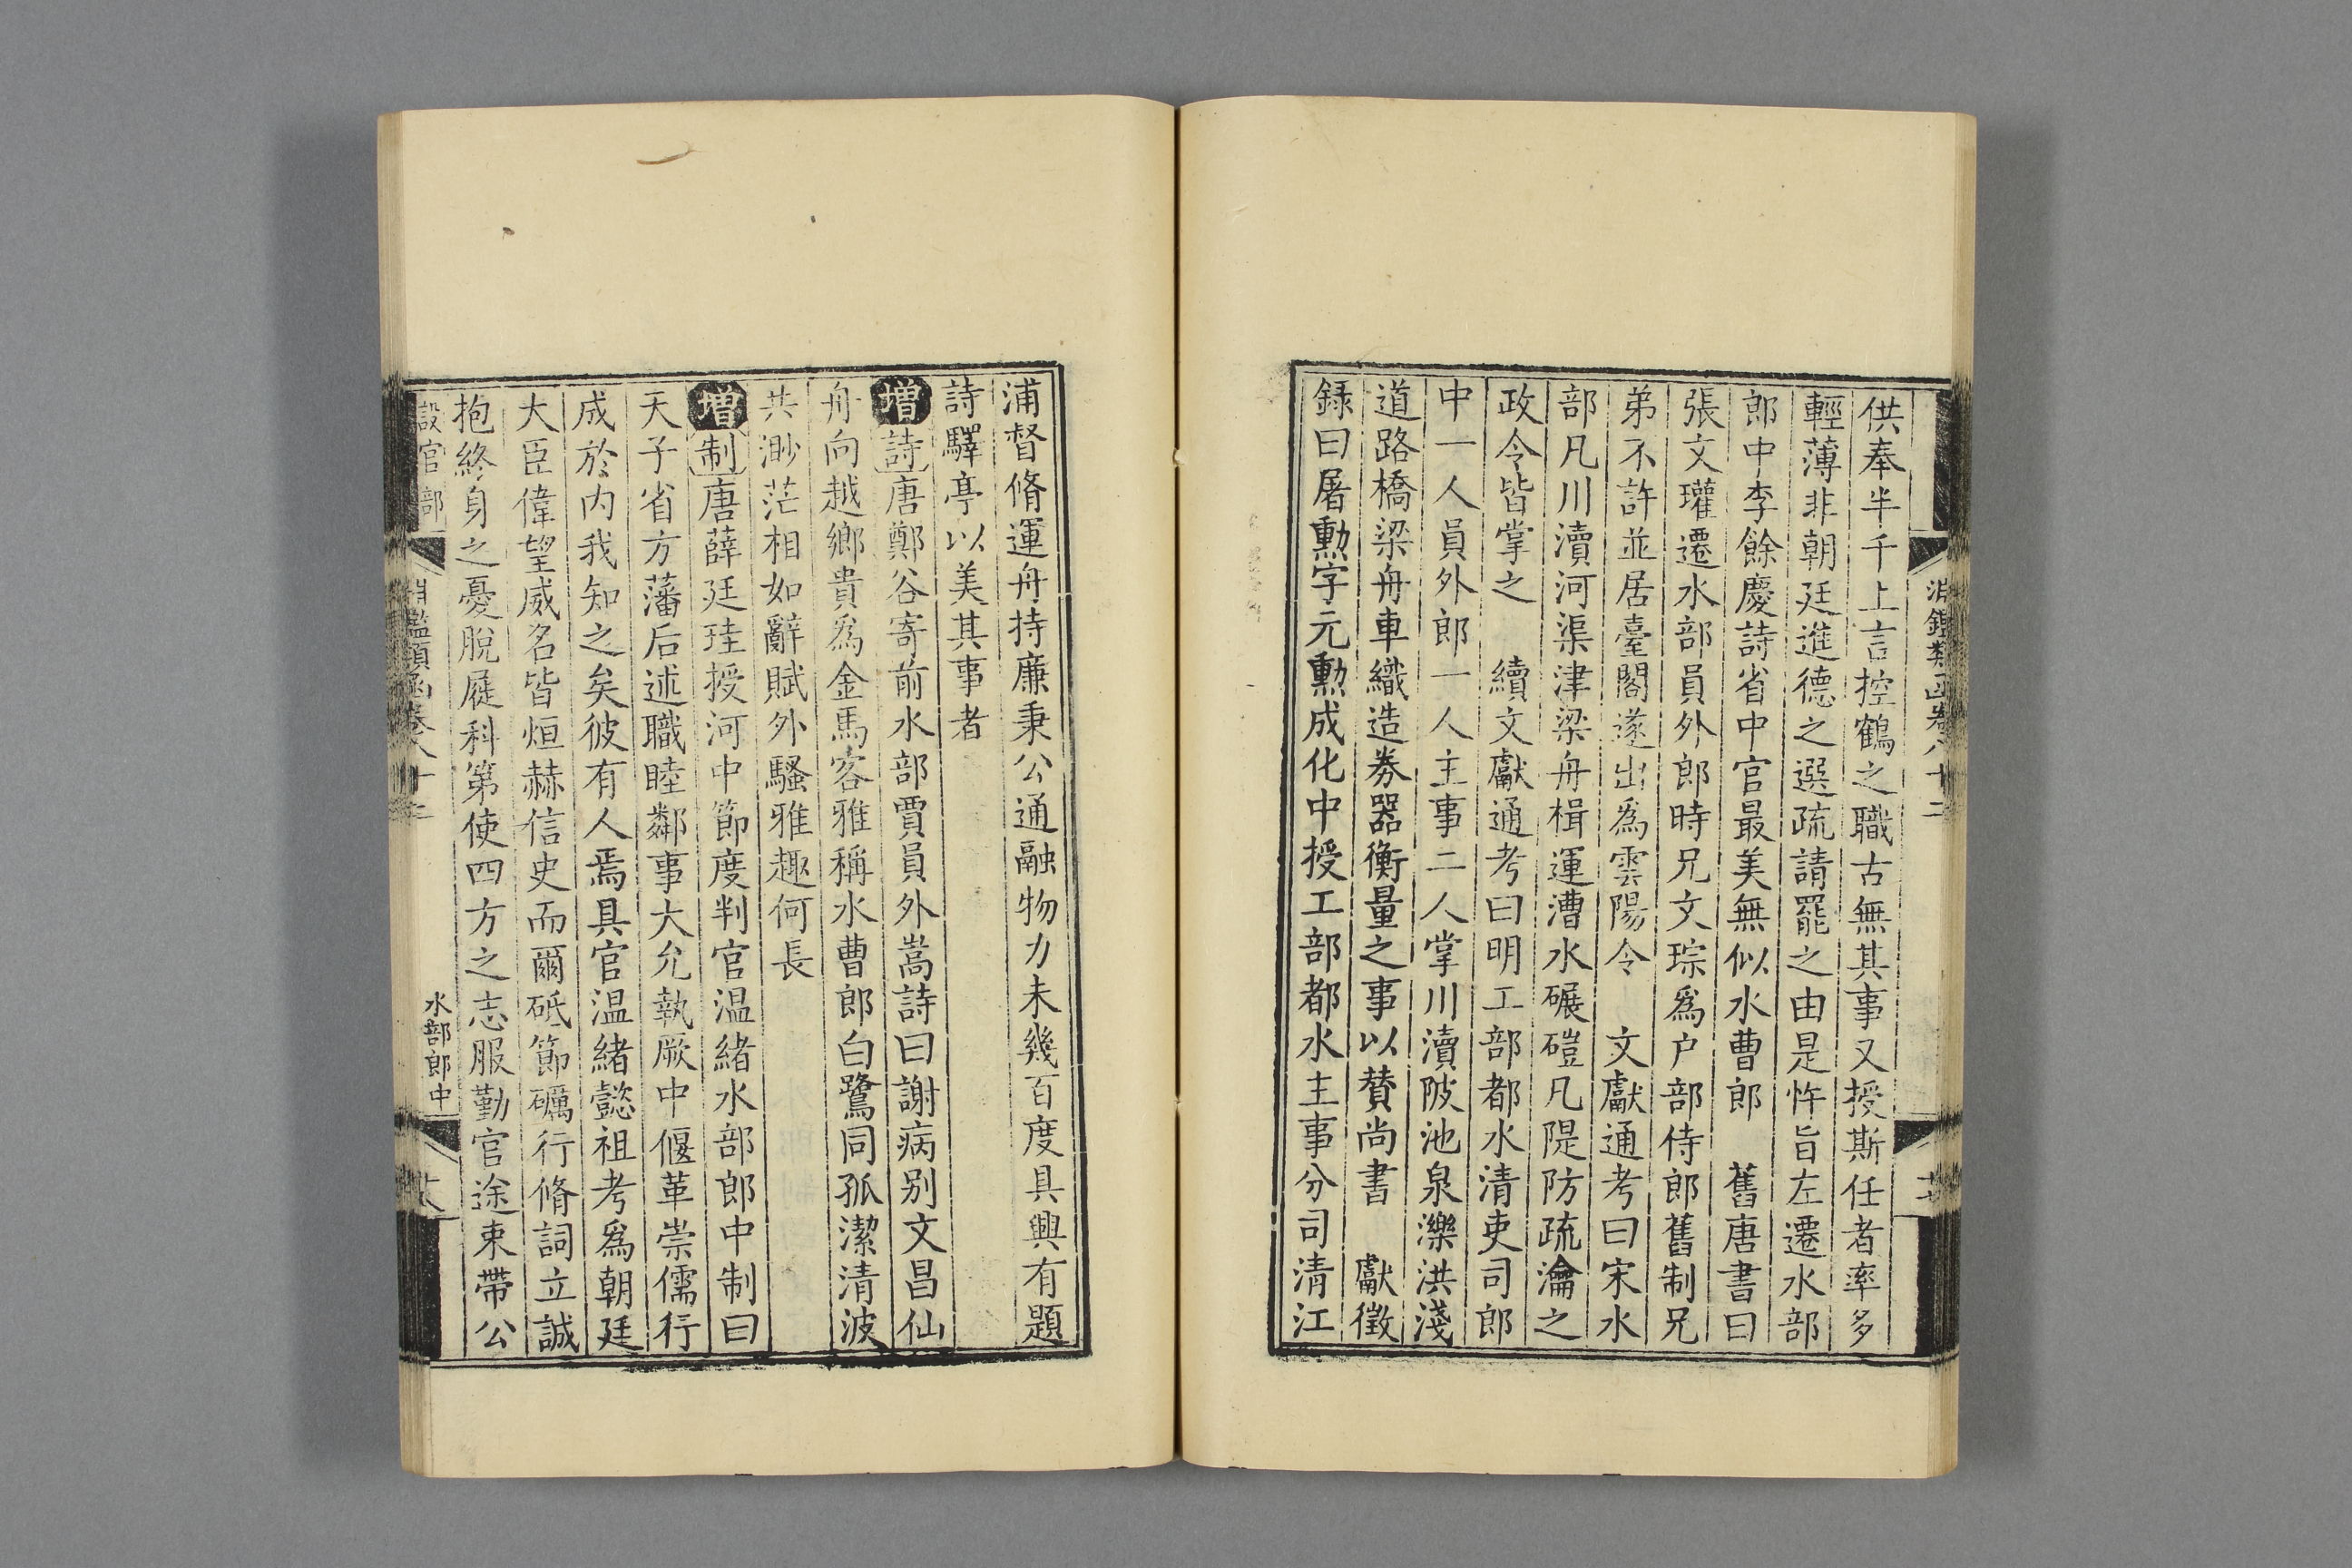 供奉半千上言控鶴之職古無其事又授斯任者率多
輕薄非朝廷進德之選疏請罷之由是忤旨左遷水部
郎中李餘慶詩省中官最美無似水曹郎　舊唐書曰
張文瓘遷水部員外郎時兄文琮爲户部侍郎舊制兄
弟不許並居臺閣遂出爲雲陽令　文獻通考曰宋水
部凡川瀆河渠津梁舟楫運漕水碾磑凡隄防疏瀹之
政令皆掌之　續文獻通考曰明工部都水清吏司郎
中一人員外郎一人主事二人掌川瀆陂池泉濼洪淺
道路橋梁舟車織造劵器衡量之事以賛尚書　獻徵
録曰屠勳字元勳成化中授工部都水主事分司清江
浦督脩運舟持廉秉公通融物力未幾百度具興有題
詩驛亭以美其事者
增詩唐鄭谷寄前水部賈員外嵩詩曰謝病别文昌仙
舟向越鄉貴爲金馬客雅稱水曹郎白鷺同孤潔清波
共渺茫相如辭賦外騷雅趣何長
增制唐薛廷珪授河中節度判官温緒水部郎中制曰
天子省方藩后述職睦鄰事大允執厥中偃革崇儒行
成於内我知之矣彼有人焉具官温緒懿祖考爲朝廷
大臣偉望威名皆烜赫信史而爾砥節礪行脩詞立誠
抱終身之憂脫屣科第使四方之志服勤官途束帶公
設官部
淵鑑類函卷八十二
水部郎中